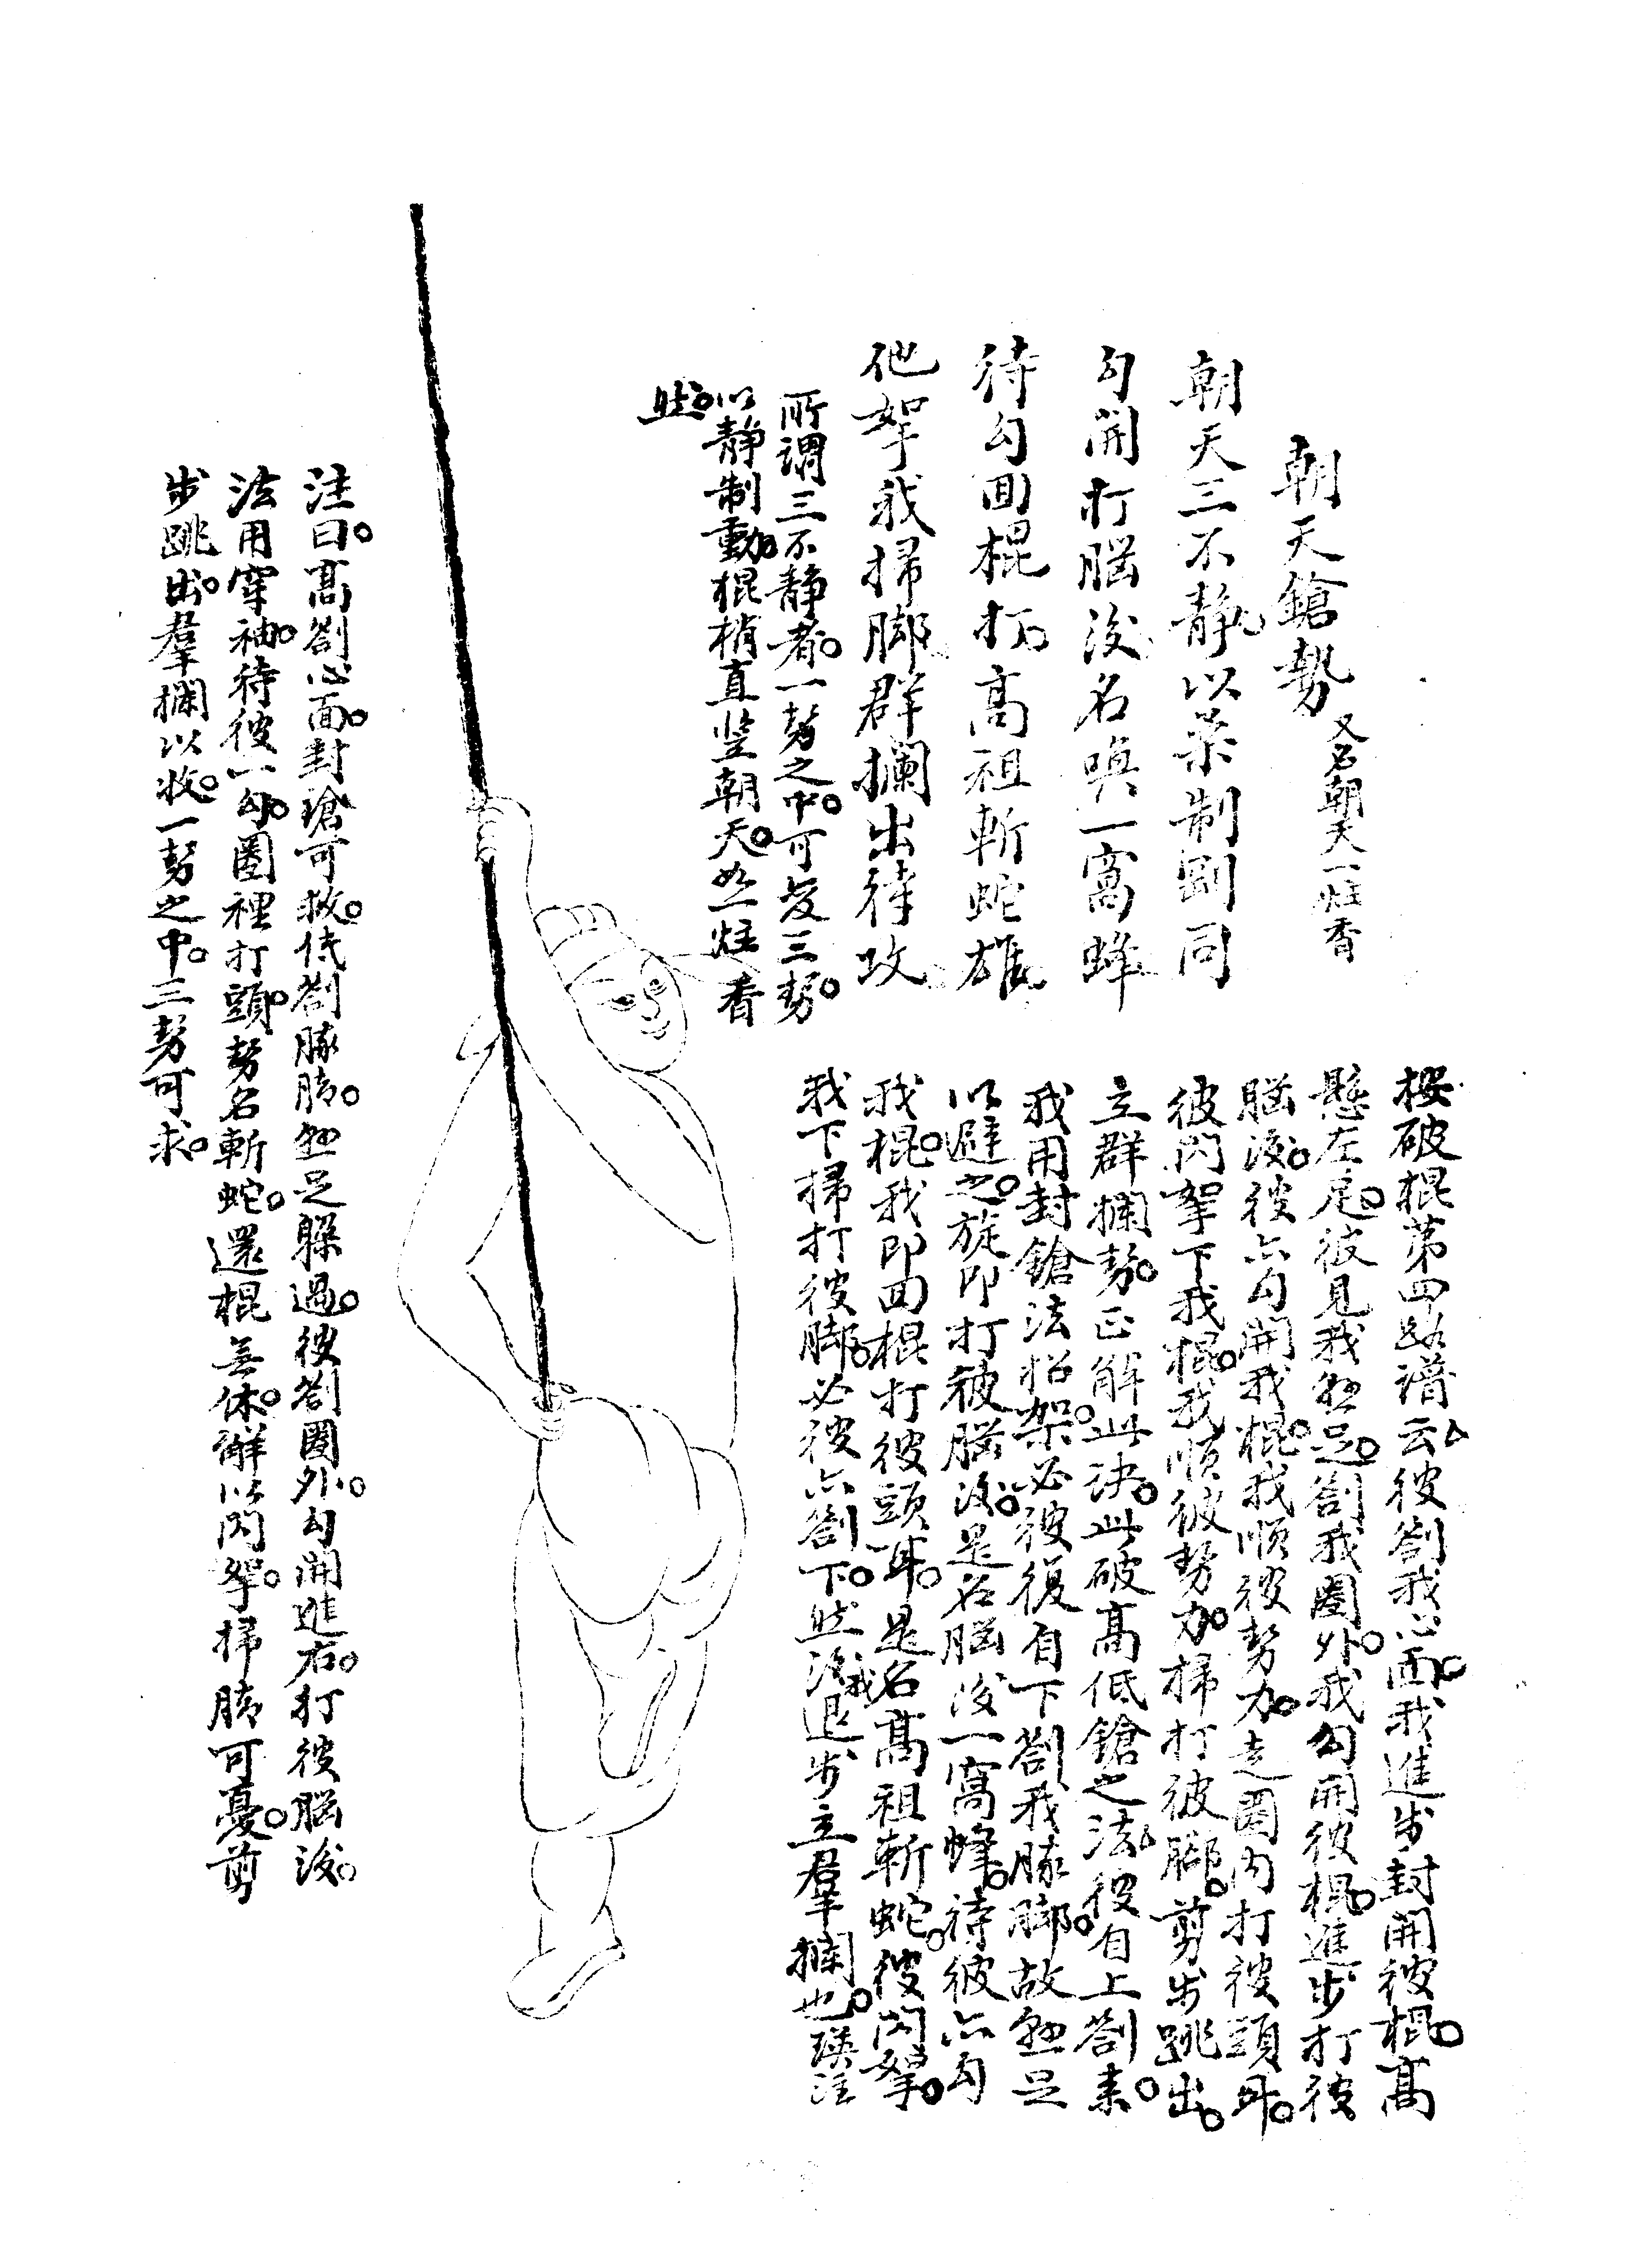 朝天鎗勢 又名朝天一炷香
朝天三不静以柔制剛同
勾開打腦後名喚一窩蜂
待勾回棍打高祖斬蛇雄
他拏我掃脚群攔出待攻
所謂三不静者一势之中可变三势
以静制動棍梢直竖朝天如一炷香
然
按破棍第四路譜云彼劄我心面我進步封開彼棍高
懸左足彼見我懸足劄我圈外我勾開彼棍進步打彼
腦後彼亦勾開我棍我順彼势力走圈内打彼頭耳
彼閃拏下我棍我順彼势力掃打彼脚剪步跳出
立群攔势正解此诀此破高低鎗之法彼自上劄来
我用封鎗法招架必彼復自下劄我膝脚故懸足
以避之旋即打彼腦後是名腦後一窩蜂待彼亦勾
我棍我即回棍打彼頭耳是名高祖斬蛇彼閃拏
我下掃打彼脚必彼亦劄下然後我退步立羣攔也瑛注
注曰高劄心面封鎗可救低劄膝脚懸足躲過彼劄圈外勾開進右打彼腦後
法用穿袖待彼一勾圈裡打頭势名斬蛇還棍無休解以閃拏掃脚可憂剪
步跳出羣攔以救一势之中三势可求